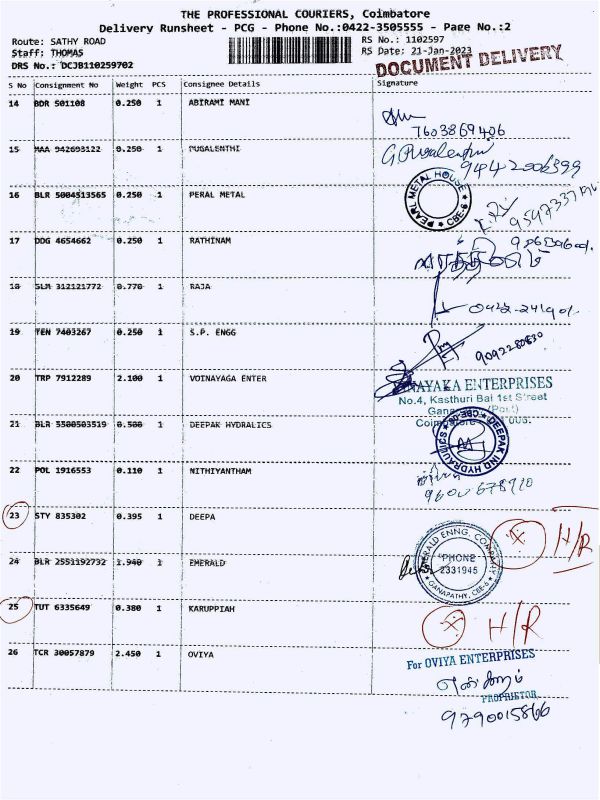 THE PROFESSIONAL COURIERS, Coimbatore
Delivery Runsheet - PCG - Phone No.:0422-3505555 - Page No.:2
Route: SATHY ROAD
RS No.: 1102597
Staff: THOMAS
RS Date: 21-Jan-2023
DRS No.: DCJB110259702
DOCUMENT DELIVERY
S No Consignment No Weight PCS Consignee Details Signature
14 BDR 501108 0.250 1 ABIRAMI MANI
7603869406
15 MAA 942693122 0.250 1 PUGALENTHI
G. Pugalenthi
9442006399
16 BLR 5004513565 0.250 1 PERAL METAL
PEARL METAL HOUSE CBE-6
17 DDG 4654662 0.250 1 RATHINAM
18 SLM 312121772 0.770 1 RAJA
19 TEN 7403267 0.250 1 S.P. ENGG
9092280830
20 TRP 7912289 2.100 1 VOINAYAGA ENTER
VINAYAKA ENTERPRISES
No.4, Kasthuri Bai 1st Street
(Post)
21 BLR 5500503519 0.500 1 DEEPAK HYDRALICS
DEEPAK IND HYDRAULICS
22 POL 1916553 0.110 1 NITHIYANTHAM
23 STY 835302 0.395 1 DEEPA
H/R
24 BLR 2551192732 1.940 1 EMERALD
EMERALD ENNG. COMPANY
PHONE
2331945
GANAPATHY, CBE-6
25 TUT 6335649 0.380 1 KARUPPIAH
H/R
26 TCR 30057879 2.450 1 OVIYA
For OVIYA ENTERPRISES
PROPRIETOR
9790015866